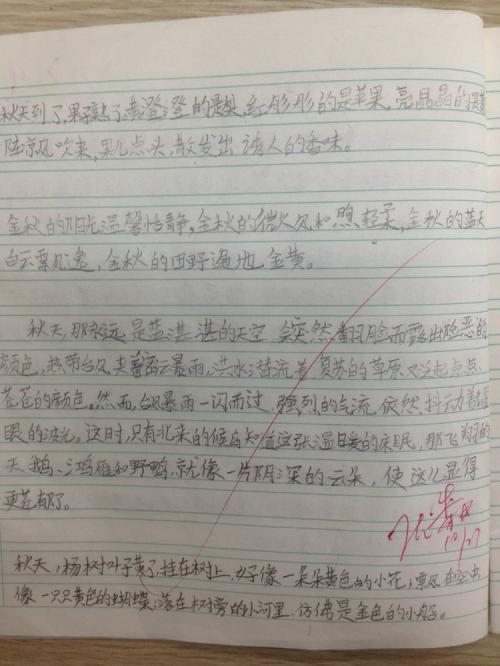 秋天到了,果子熟了,黄澄澄的是梨,红彤彤的是苹果,亮晶晶的是
阵凉风吹来,果儿点头,散发出诱人的香味。
金秋的阳光温馨恬静,金秋的微风和煦轻柔,金秋的蓝天
白云飘逸,金秋的田野遍地金黄。
秋天,那永远是蓝湛湛的天空,会突然翻脸而露出险恶的
颜色,热带台风夹着密云暴雨,洪水潜流着,复苏的草原又泛起点点
苍苍的颜色。然而,台风暴雨一闪而过,强烈的气流依然抖动着耀
眼的波光。这时,只有北来的候鸟知道这张温暖的床眠,那飞翔的
天鹅、鸿雁和野鸭,就像一片阴深的云朵,使这儿显得
更苍郁了。
10/27
秋天,杨树叶子黄了,挂在树上,好像一朵朵黄色的小花,飘风在空中,
像一只只黄色的蝴蝶,落在树旁的小河里,仿佛是金色的小船。